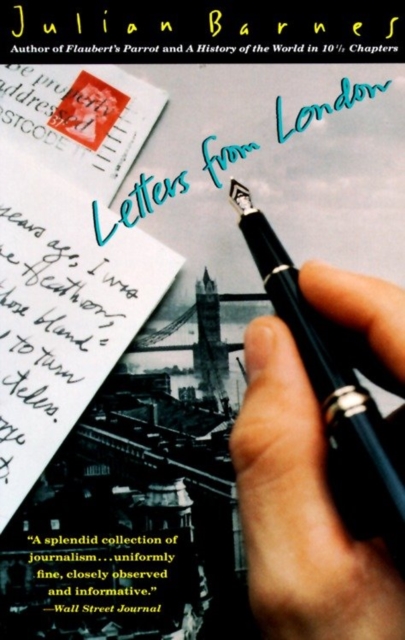 Julian Barnes
Author of Flaubert's Parrot and A History of the World in 10½ Chapters
Be properly
addressed
POSTCODE IT
Letters from London
years ago, I was
Heathrow,
those bland
to turn
"A splendid collection of
journalism...uniformly
fine, closely observed
and informative."
—Wall Street Journal